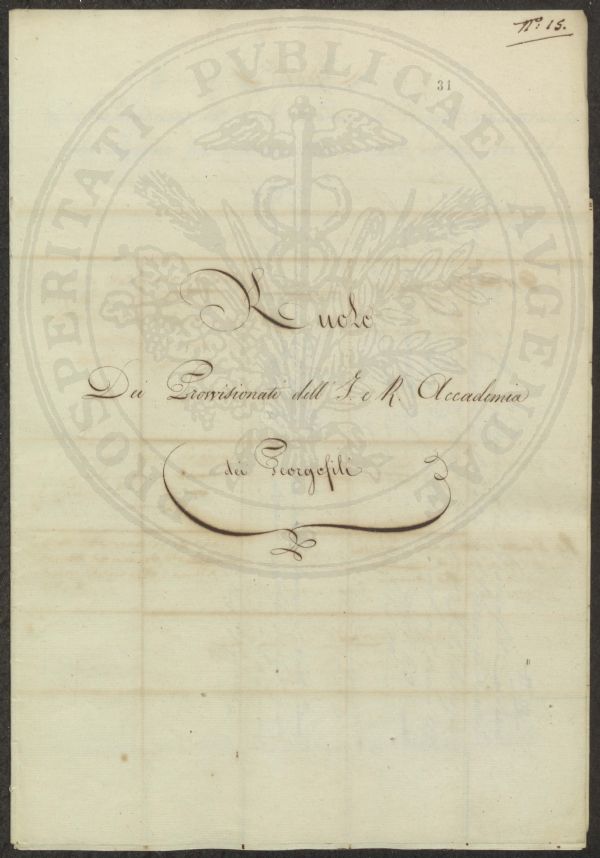 Nº 15.
31
PROSPERITATI PVBLICAE AVGENDAE
Ruolo
Dei Provvisionati dell' I. e R. Accademia
dei Georgofili